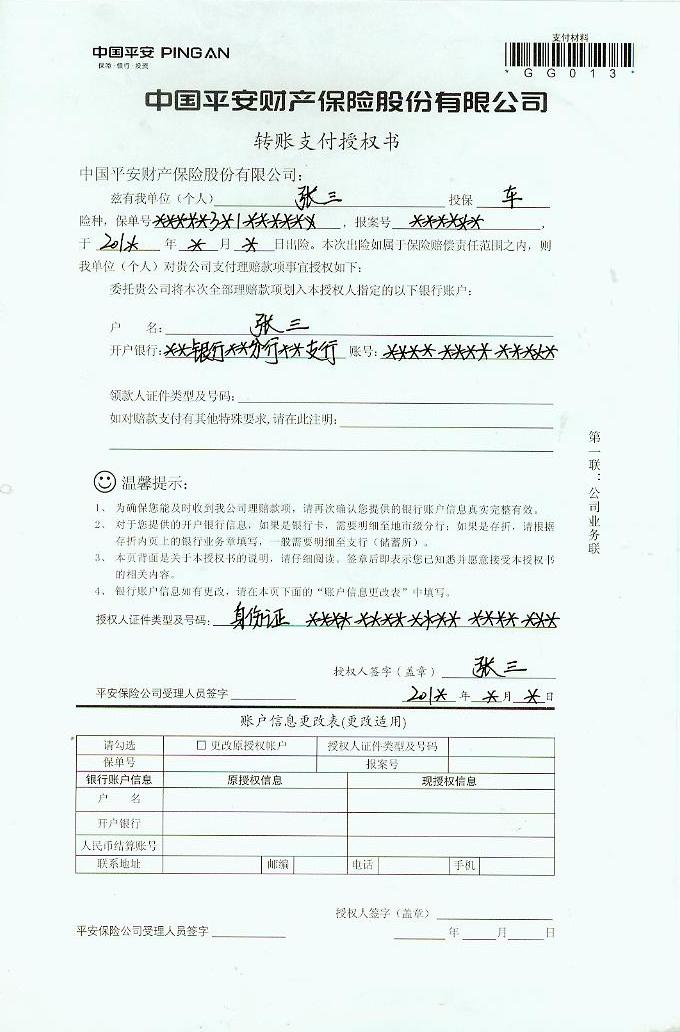 支付材料
中国平安 PING AN
保险·银行·投资
*GG013*
中国平安财产保险股份有限公司
转账支付授权书
中国平安财产保险股份有限公司:
兹有我单位（个人）张三 投保 车
险种，保单号****3*1******，报案号 ******，
于 201* 年 * 月 * 日出险。本次出险如属于保险赔偿责任范围之内，则
我单位（个人）对贵公司支付理赔款项事宜授权如下:
委托贵公司将本次全部理赔款项划入本授权人指定的以下银行账户:
户 名: 张三
开户银行: **银行**分行**支行 账号: **** **** *****
领款人证件类型及号码:
如对赔款支付有其他特殊要求,请在此注明:
第一联：公司业务联
温馨提示:
1、为确保您能及时收到我公司理赔款项，请再次确认您提供的银行账户信息真实完整有效。
2、对于您提供的开户银行信息，如果是银行卡，需要明细至地市级分行；如果是存折，请根据
存折内页上的银行业务章填写，一般需要明细至支行（储蓄所）。
3、本页背面是关于本授权书的说明，请仔细阅读。签章后即表示您已知悉并愿意接受本授权书
的相关内容。
4、银行账户信息如有更改，请在本页下面的“账户信息更改表”中填写。
授权人证件类型及号码: 身份证 **** **** **** **** ***
授权人签字（盖章） 张三
平安保险公司受理人员签字 201* 年 * 月 * 日
账户信息更改表(更改适用)
请勾选 □ 更改原授权帐户 授权人证件类型及号码
保单号 报案号
银行账户信息 原授权信息 现授权信息
户 名
开户银行
人民币结算账号
联系地址 邮编 电话 手机
授权人签字（盖章）
平安保险公司受理人员签字 年 月 日